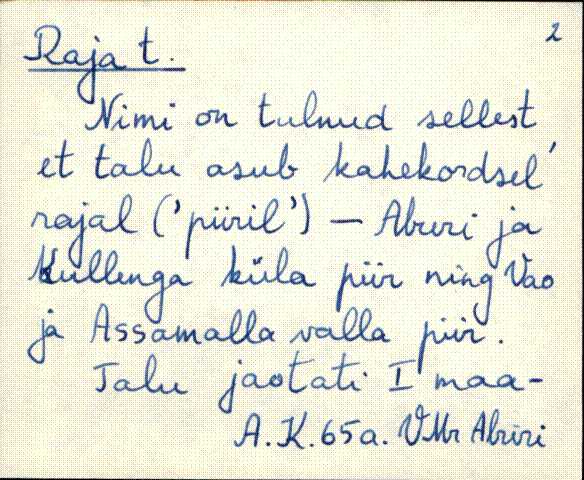 2
Raja t.
Nimi on tulnud sellest,
et talu asub kahekordsel
rajal ('piiril') – Aburi ja
Kullenga küla piir ning Vao
ja Assamalla valla piir.
Talu jaotati I maa-
A.K. 65a. VMr Aburi